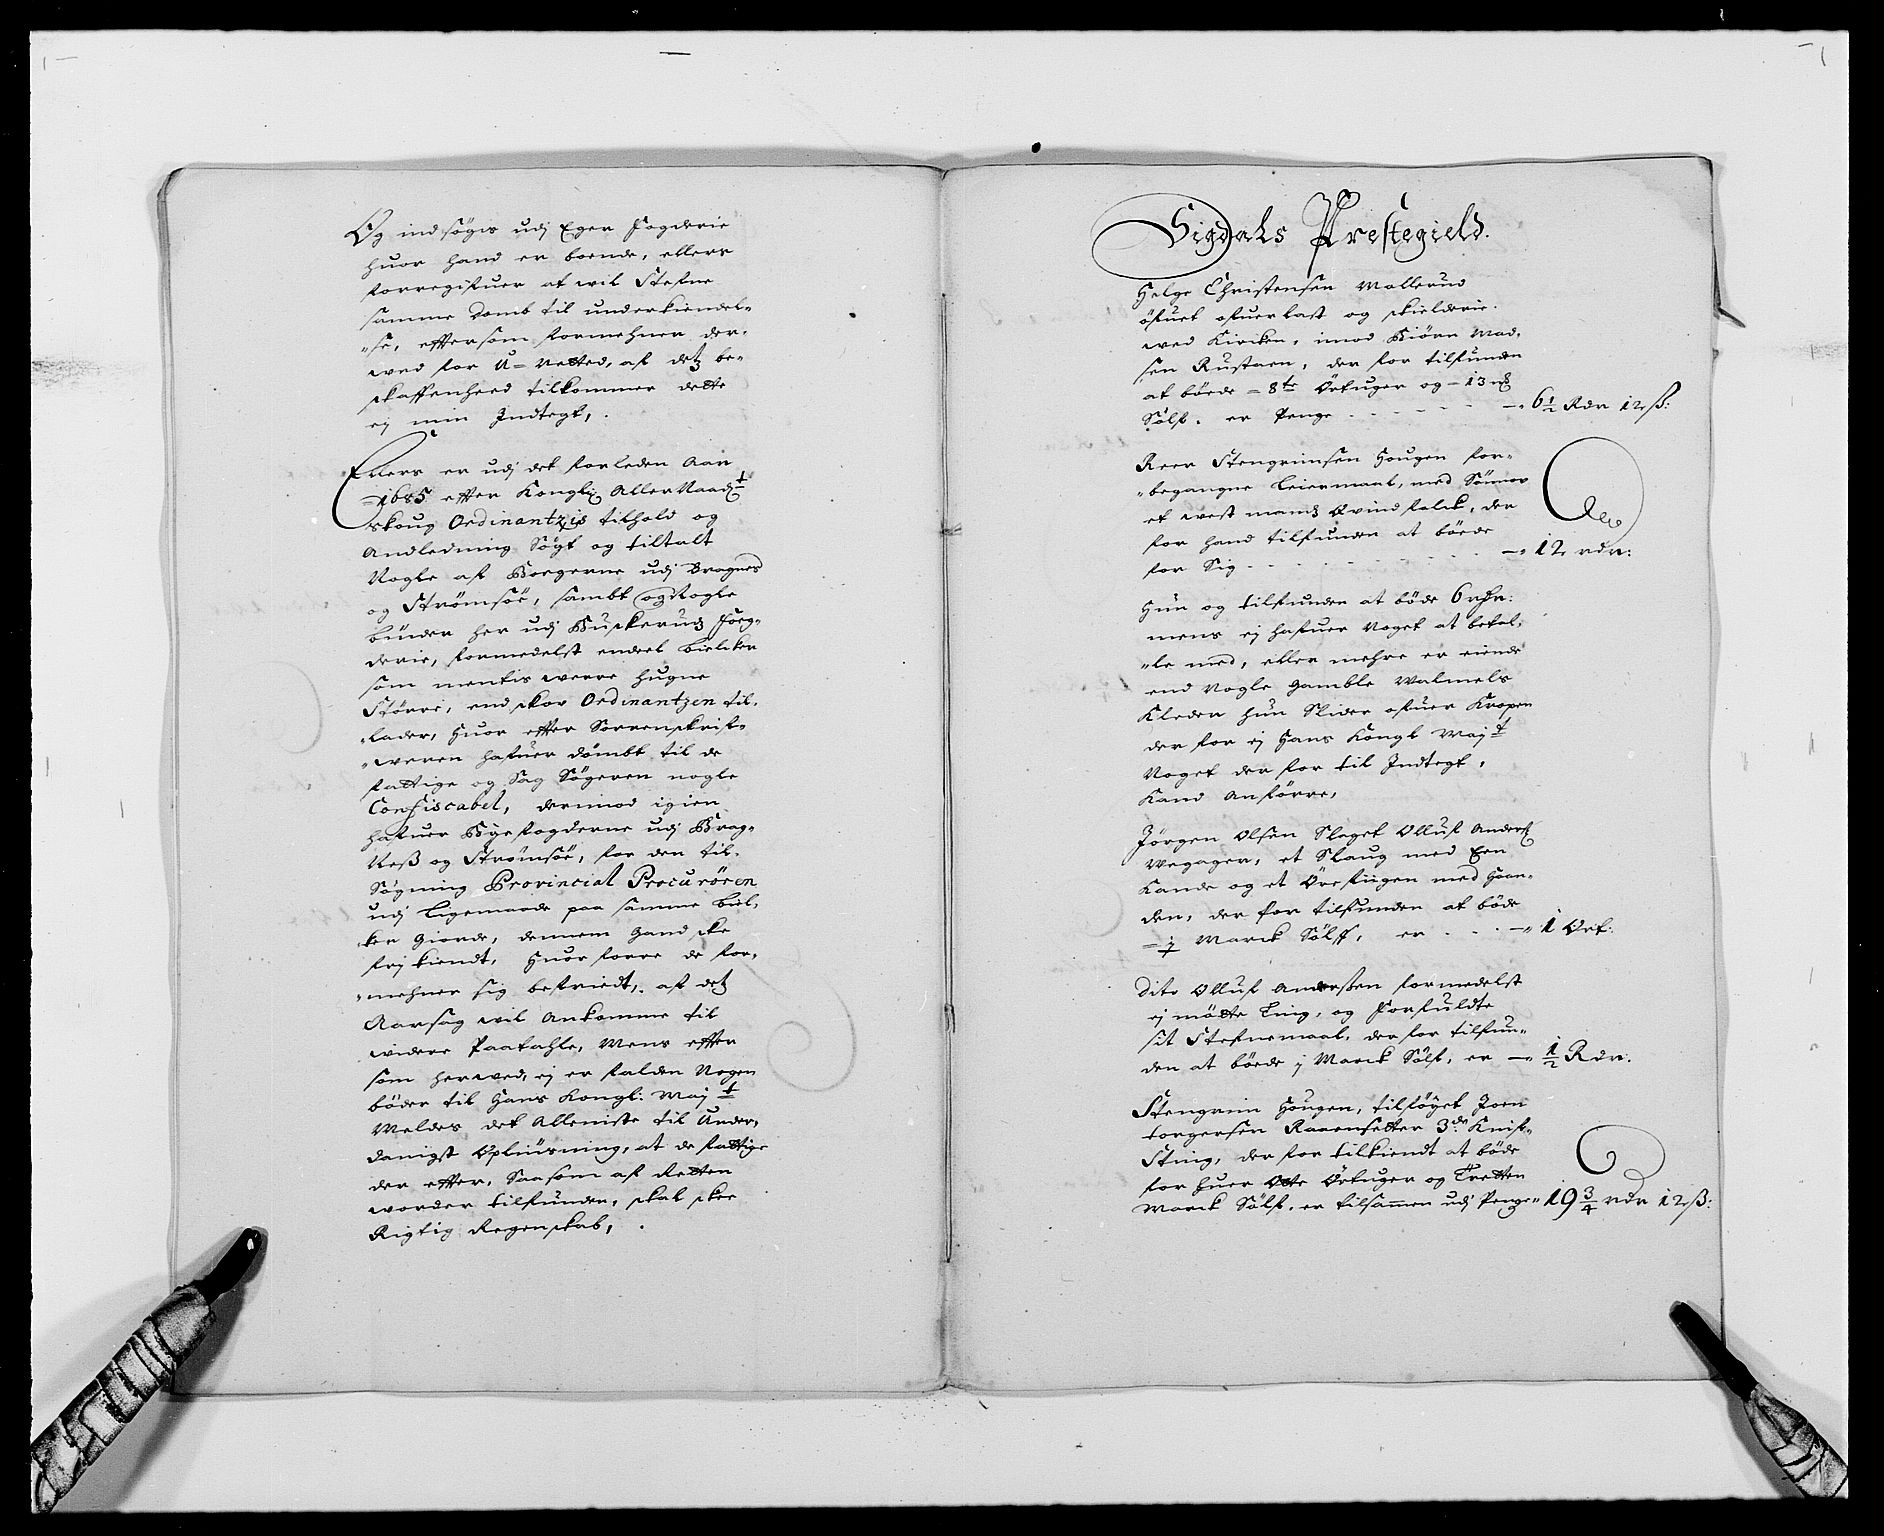 Og indsøgis udj Eger Fogderie
huor hand er boende, ellers
forregifuer at wil Stefne
samme Domb til underkiendel„
„se, effersom formehner der„
wed for U=Retted, af detz be„
skaffenhed tilkommer dette
ej min Indtegt,.
Ellers er udj det forleden Aar
=1685 effter Kongl: AllerNaadt
skoug Ordinantzis tilhold og
Andledning Søgt og tiltalt
Nogle af Borgerne udj Bragnes
og Strømsøe, sambt og Nogle
bönder her udj Buskerudz Foeg„
derie, formedelst endeel bielcker
som mentis werre hugne
Større, end skov Ordinantzen til„
„lader, Huor effter Sorrenskrif„
„weren hafuer dömbt til de
fattige og Sag Søgeren nogle
Confiscabel, derimod igien
hafuer Byefogderne udj Brag„
Neß og Strømsøe, for den til„
Søgning Provincial Procurören
udj Ligemaade paa samme biel„
ker giorde, dennem gandske
frj kiendt, Huor forre de for„
„mehner sig befriedt, af detz
Aarsag wil Ankomme til
widere Paatahle, Mens effter
som herwed, ej er falden Nogen
böder til Hans Kongl: Mayt
Meldes det Alleniste til Under„
danigst Opliusning, at de fattige
der effter, Saasom af Retten
worder tilfunden, skal skee
Rigtig Regenskab,.
Sigdahls Prestegield.
Helge Christensen Mollerud
öfuet ofuerlast og skielderie
wed Kircken, imod Biörn Mad„
sen Rustaen, der for tilfunden
at böede =8te Örtuger og =13 mk
Sölf. er Penge - - - - - 6½ Rdr 12 ß:
Reer Stengrimsen Hougen for„
„begangne Leiermaal, med Sönnov
et west mandz Qvindfolck, der
for hand tilfunden at böede
for Sig - - - - - 12 rdr:
Hun og tilfunden at böde 6 rdr:
mens ej hafuer Noget at betal„
„le med, eller mehre er eiende
end Nogle gamble Walmels
Kleder hun Slider ofuer Kropen
der for ej Hans Kongl Mayt
Noget der for til Indtegt,
Kand Anförre,
Jörgen Olsen Slaget Olluf Anders:
Wegager, et Slaug med Een
Kande og et Örefiigen med Haan„
den, der for tilfunden at böde
=½ Marck Sölf, er - - - 1 Ort:
Dito Olluf Anderßen formedelst
ej mötte Ting, og Forfuldte
sit Stefnemaal, der for tilfun„
den at böede j Marck Sölf, er - ½ Rdr:
Stengrim Hougen, tilföyet Joen
torgersen Raaensetter 3de Knif„
Sting, der for tilkiendt at böde
for huer Otte Örtuger og Tretten
Marck Sölf, er tilsammen udj Penge 19¾ rdr 12 ß: